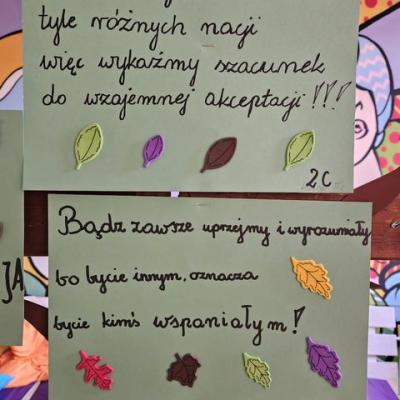 tyle różnych nacji
więc wykażmy szacunek
do wzajemnej akceptacji!!!
2C
Bądź zawsze uprzejmy i wyrozumiały
bo bycie innym, oznacza
bycie kimś wspaniałym!
JA